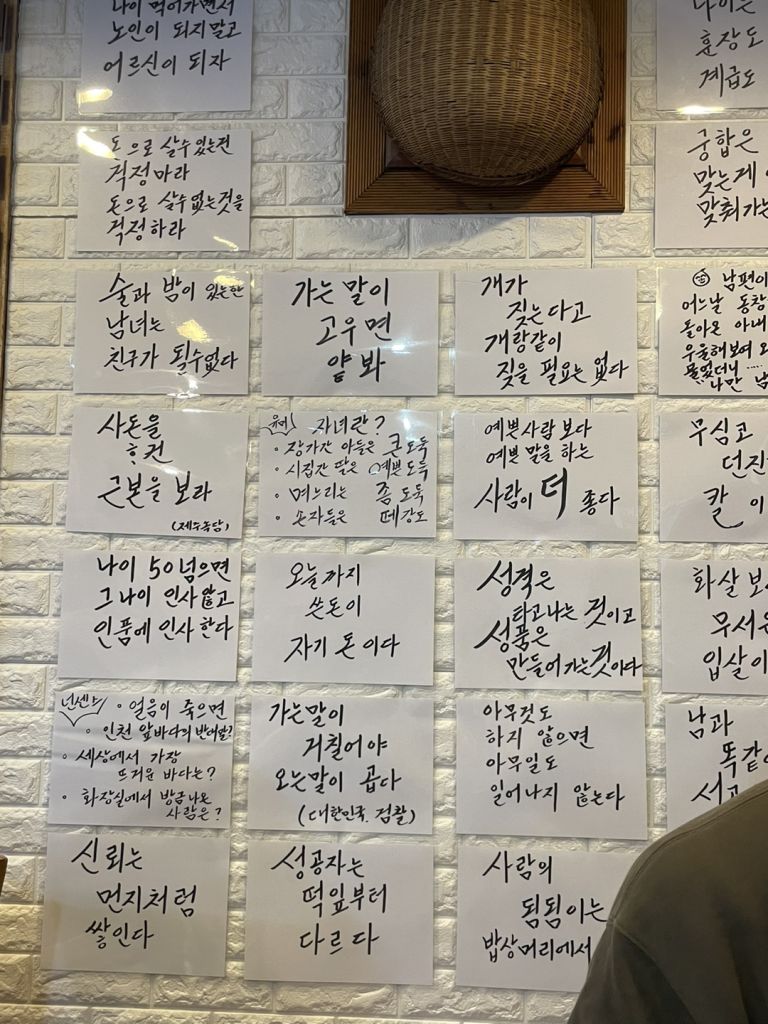 나이 먹어가면서
노인이 되지말고
어르신이 되자
나이는
훈장도
계급도
돈으로 살수있는건
걱정마라
돈으로 살수없는것을
걱정하라
궁합은
맞는게
맞춰가는
술과 밤이 있는한
남녀는
친구가 될수없다
가는 말이
고우면
얕봐
개가
짖는다고
개랑같이
짖을 필요는 없다
남편이
어느날 동창
돌아온 아내
우울해보여
물었더니 ....
나만 남
사돈을
할건
근본을 보라
(제수농담)
유머
자녀란?
• 장가간 아들은 큰도둑
• 시집간 딸은 예쁜도둑
• 며느리는 좀도둑
• 손자들은 떼강도
예쁜사람 보다
예쁜 말을 하는
사람이 더 좋다
무심고
던진
칼이
나이 50넘으면
그나이 인사 않고
인품에 인사한다
오늘까지
쓴돈이
자기 돈이다
성격은
타고나는 것이고
성품은
만들어가는것이다
화살보
무서운
입살이
넌센스
• 얼음이 죽으면
• 인천 앞바다의 반대말?
• 세상에서 가장
뜨거운 바다는?
• 화장실에서 방금나온
사람은?
가는말이
거칠어야
오는말이 곱다
(대한민국. 검찰)
아무것도
하지 않으면
아무일도
일어나지 않는다
남과
똑같
서고
신뢰는
먼지처럼
쌓인다
성공자는
떡잎부터
다르다
사람의
됨됨이는
밥상머리에서